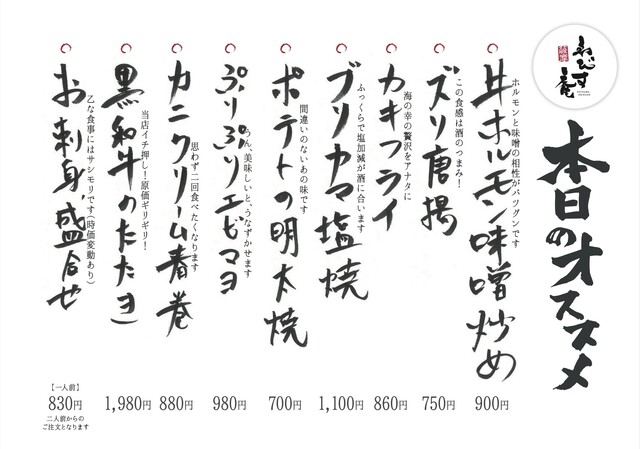 本日のオススメ
牛ホルモン味噌炒め
ホルモンと味噌の相性がバツグンです
900円
ズリ唐揚
この食感は酒のつまみ！
750円
カキフライ
海の幸の贅沢をアナタに
860円
ブリカマ塩焼
ふっくらで塩加減が酒に合います
1,100円
ポテトの明太焼
間違いのないあの味です
700円
ぷりぷりエビマヨ
うん、美味しいと、うなずかせます
980円
カニクリーム春巻
思わず二回食べたくなります
880円
黒和牛のたたき
当店イチ押し！原価ギリギリ！
1,980円
お刺身盛合せ
乙な食事にはサシモリです（時価変動あり）
【一人前】
830円
二人前からの
ご注文となります